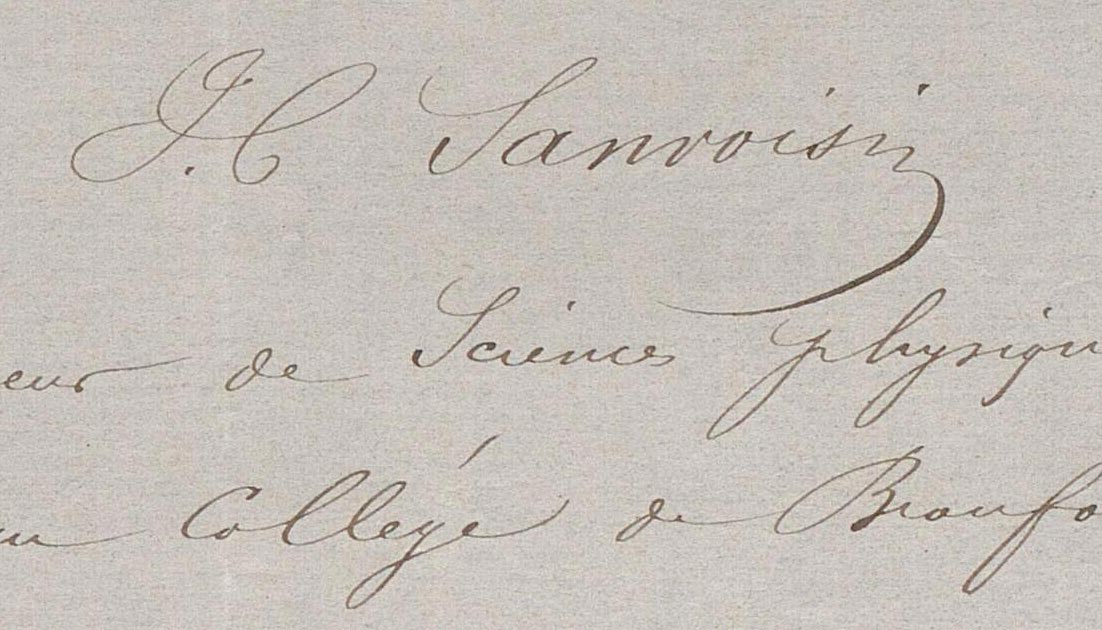 J. C Sanvoisin
eur de Sciences physiqu
au Collége de Beaufo